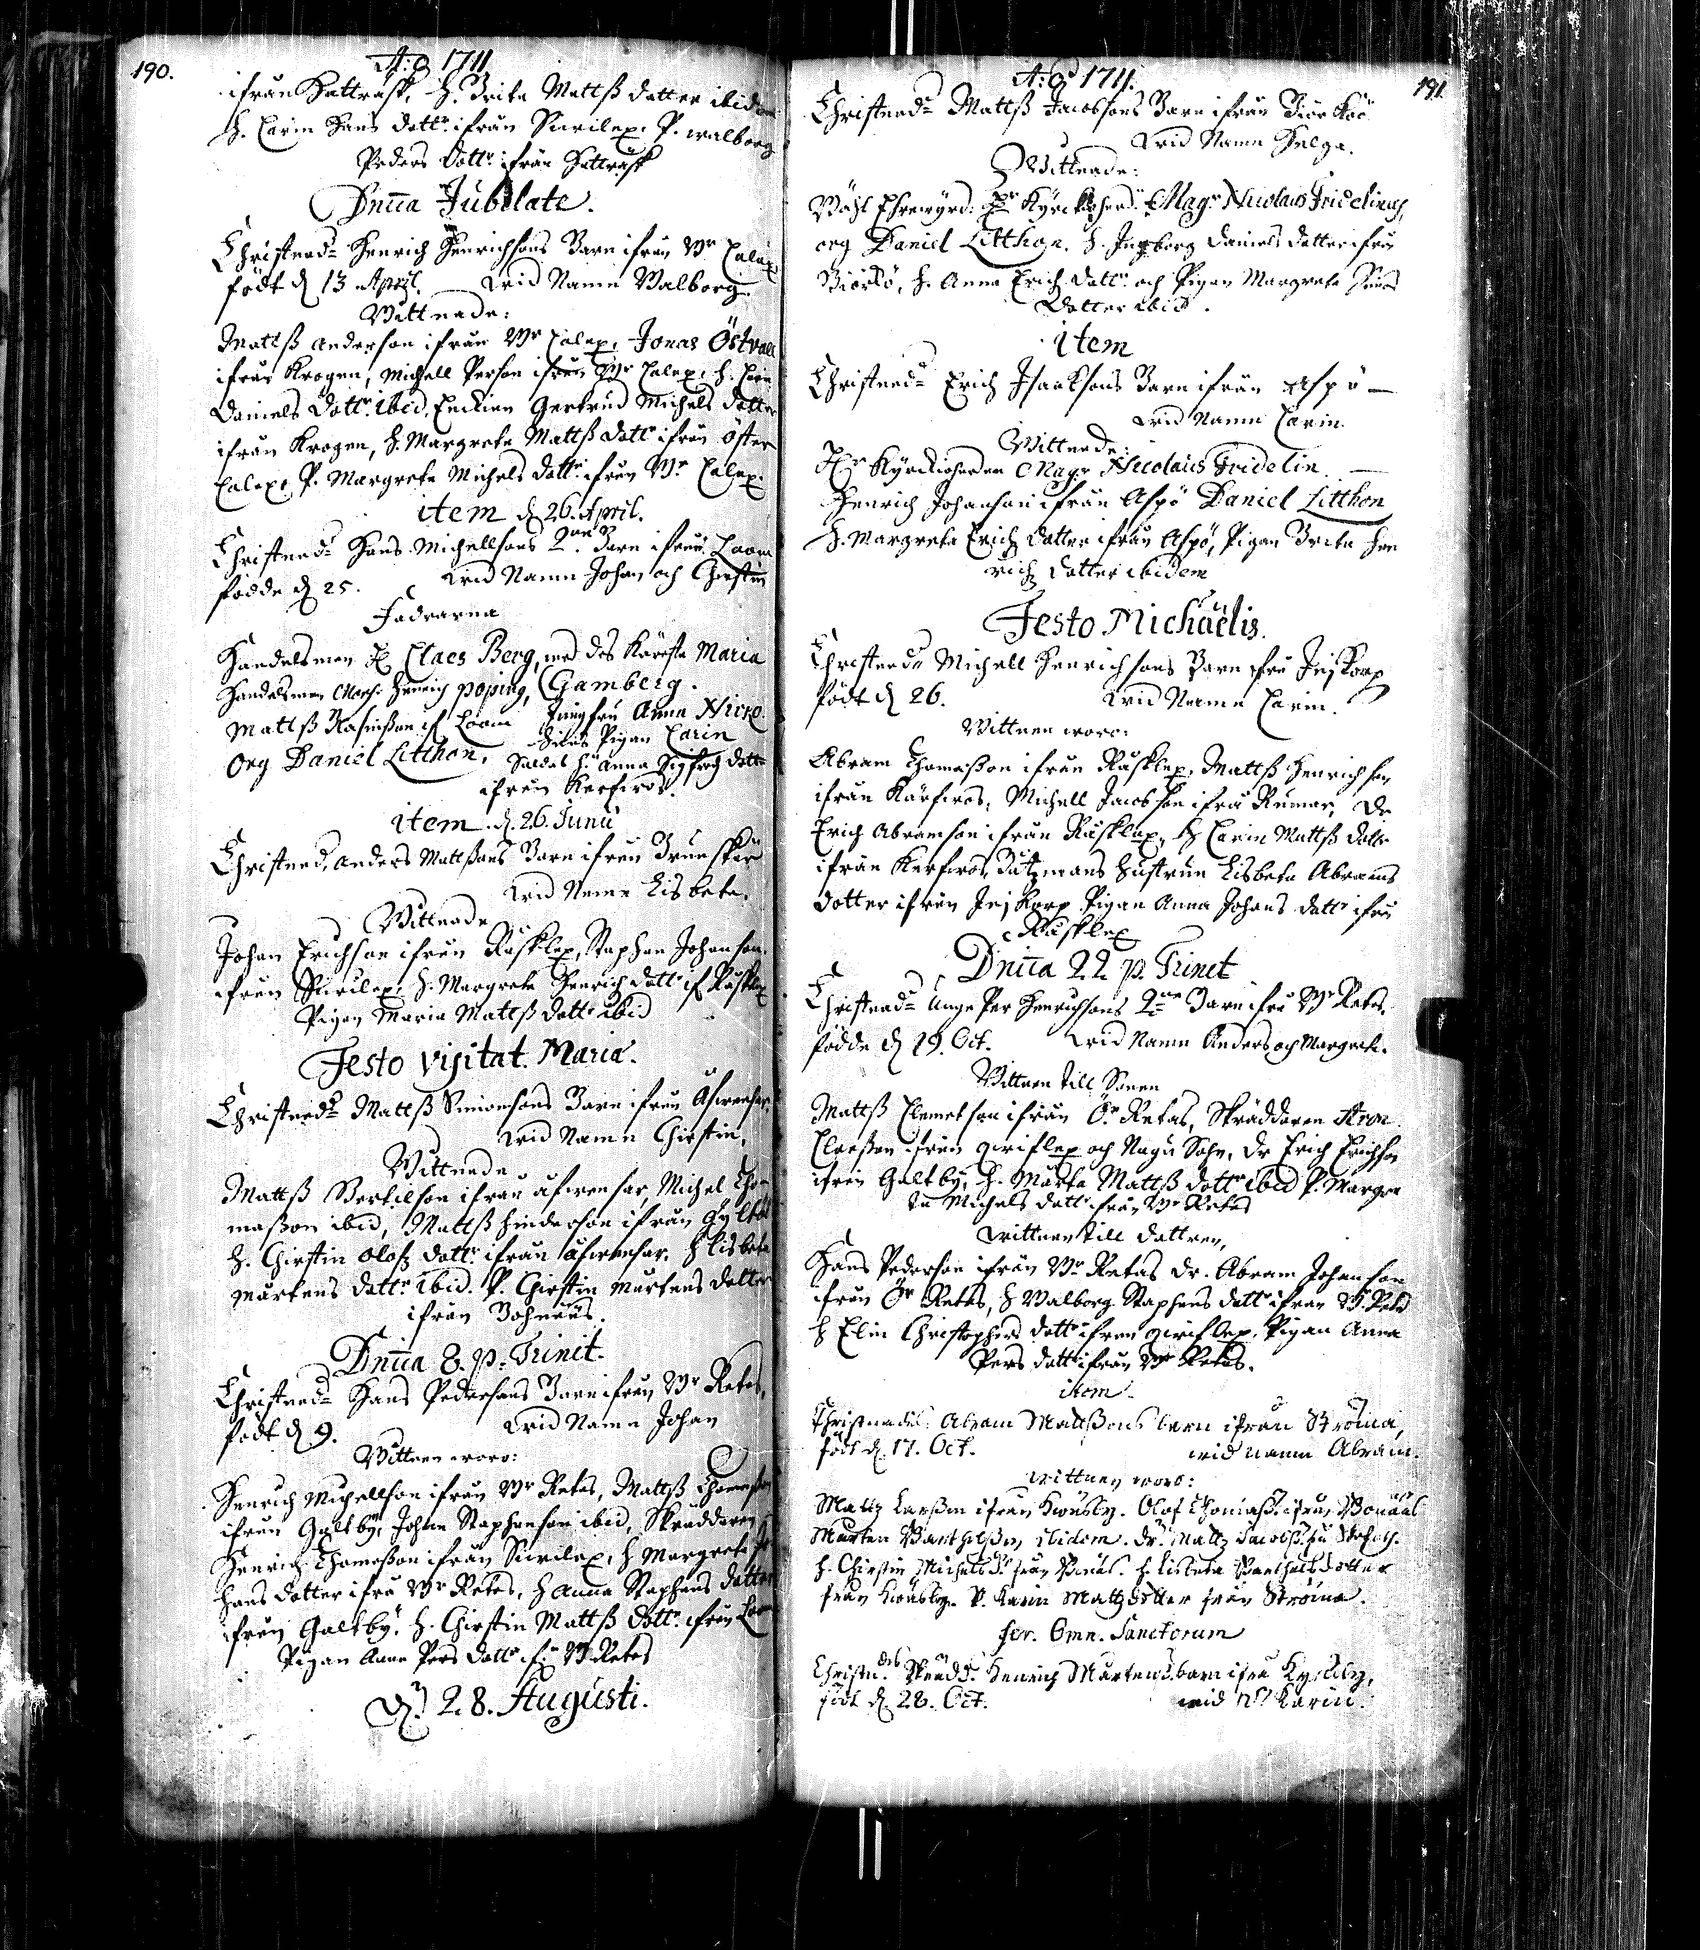 190.
A:o 1711
ifrån Hattrask, H. Brita Mattß dotter ibidem
H. Carin Hans dottr ifrån Siwilex. P. walborg
Peders dottr ifrån Hattrask
Dnica Jubilate.
Christnad Henrich Henrichsons Barn ifrån Wr Calax
född d 13 April. wid Namn Walborg.
Wittnade:
Mattß anderson ifrån Wr Calax, Jonas Östvall
ifrån Krogen, Michell Person ifrån Wr Calax, H. Carin
Daniels dottr ibid, Enckien Gertrud Michels dotter
ifrån Krogen, H. Margreta Mattß dottr ifrån öster
Calax, P. Margreta Michels dottr ifrån Wr Calax.
item d 26. April.
Christnad Hans Michellsons 2ne Barn ifrån Loom
födde d 25. wid Namn Johan och Chirstin
Fadrarna
Handelsman H Claes Berg, med des Käresta Maria
Handelsman Henrich Poping, Gamberg.
Mattß if Loom Jungfru Anna
Org Daniel Litthon, Pigan Carin
H. Anna Sigfredz dottr
ifrån Kerfwos.
item d. 26. Junii
Christnad, Anders Mattßons Barn ifrån Brunskär
wid Namn Lisbeta.
Wittnade
Johan Erichson ifrån Räsklax, Staphan Johanson
ifrån Siwilax, H. Margreta Henrich dottr if Räsklax
Pigan Maria Mattß dottr ibid
Festo visitat. Mariæ.
Christnad Mattß Simonsons Barn ifrån Åfwensar,
wid Namn Chirstin,
Wittnade
Mattß Bertilson ifrån åfwensar, Michel Tho-
maßon ibid, Mattß Hinderson ifrån Gyltö
H. Chirstin Olofz dottr ifrån åfwensar. H Lisbeta
Mårtens dottr ibid. P. Chirstin Mårtens dotter
ifrån Bohnääs.
Dnica 8. p. Trinit.
Christnad Hans Pedersons Barn ifrån Wr Retas,
född d 9. wid Namn Johan
Wittnen woro:
Henrich Michellson ifrån Wr Retas, Mattß Thomaßon
ifrån Galtby, Johan Staphanson ibid, Skräddaren
Henrich Thomaßon ifrån Siwilax, H Margreta Jo
hans dotter ifrå Wr Retas, H Anna Staphans dotter
ifrån Galtby, H. Chirstin Mattß dottr ifrån Loom
Pigan Anna Pers dottr if: W. Retas
D. 28. Augusti.
191
A:o 1711.
Christnad Mattß Jacobsons Barn ifrån Biörkö
wid Namn Helga.
Wittnade:
Wähl Ehrewyrd: Hr Kyrckioherd: Magr Nicolaus Fridelinus,
org Daniel Litthon. H. Ingborg Daniels dotter ifrån
Biörkö, H. Anna Erich dottr och Pigan Margreta Simons
Dotter ibid.
item
Christnad Erich Isaaksons Barn ifrån Aspö
wid Namn Carin.
Wittnade:
Hr Kyrckioherden Magr Nicolaus Fridelin
Henrich Johanson ifrån Aspö Daniel Litthon
H. Margreta Erich dotter ifrån Aspö, Pigan Brita Hen
richz dotter ibidem
Festo Michaëlis.
Christnad Michell Henrichsons Barn ifrå Inskorp
född d 26. wid Namn Carin.
Wittnen woro:
Abram Thomaßon ifrån Räsklax, Mattß Henrichson
ifrån Kärfwos, Michell Jacobson ifrå Rumar, Dr
Erich Abramson ifrån Räsklax, H Carin Mattß dottr
ifrån Kerfwos, hustrun Lisbeta Abrams
dotter ifrån Inskorp Pigan Anna Johans dottr ifrån
Räsklax
Dnica 22 p. Trinit
Christnad unge Per Henrichsons 2ne Barn ifrå Wr Retas,
födde d 19. Oct. wid Namn Anders och Margreta.
Wittnen till Sonen
Mattß Clemetson ifrån Ör Retas, Skräddaren Aron
Claesson ifrån och Nagu Sohn, Dr Erich Erichson
ifrån Galtby, H. Marta Mattß dottr ibid P. Margre
ta Michels dottr ifrån Wr Retas
Wittnen till dottren,
Hans Pederson ifrån Wr Retas Dr. Abram Johanson
ifrån Ör Retas, H Walborg Staphens dottr ifrån W. Retas
H Elin Christophers dottr ifrån Pigan Anna
Pers dottr ifrån Wr Retas.
item.
Christnades: Abram Mattßons barn ifrån Ströma,
född d. 17. Oct. wid namn Abram.
wittnen woro:
Mattz Larßon ifrån Olof Thomaß: ifrån Bonääs
Mårten Barthelßon ibidem. Dr: Mattz Jacobß:
H. Chirstin Michels dr från Bonäs. H Lisbeta Barthels dotter
från P. Karin Mattzdotter från Ströma.
fer. Omn. Sanctorum
Christn.des Skrädd. Henrich Mårtens. barn ifrå
född d. 28. Oct. wid N. Karin.